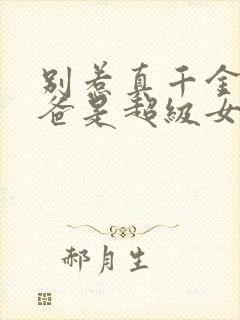 别惹真千金
爸是超级女
郝月生